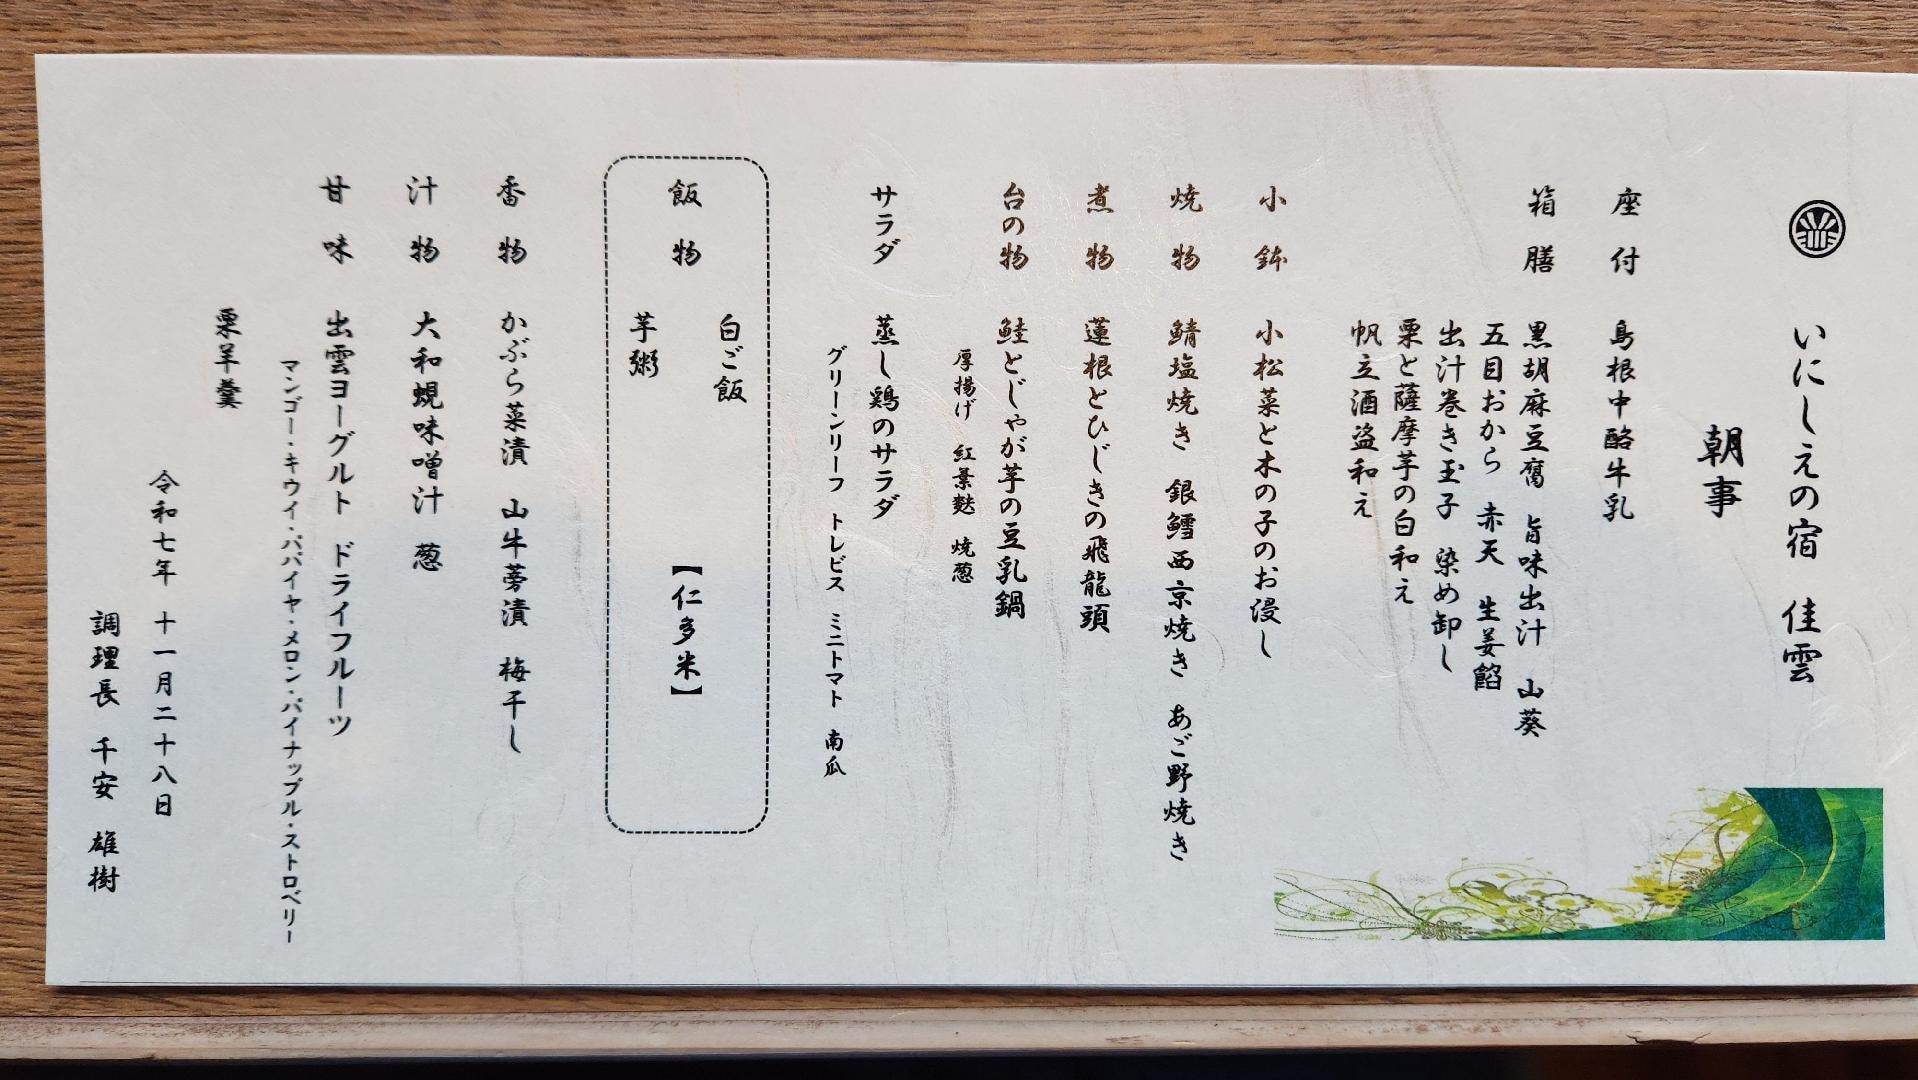 いにしえの宿 佳雲
朝事
座付 島根中酪牛乳
箱膳 黒胡麻豆腐 旨味出汁 山葵
五目おから 赤天 生姜餡
出汁巻き玉子 染め卸し
栗と薩摩芋の白和え
帆立酒盗和え
小鉢 小松菜と木の子のお浸し
焼物 鯖塩焼き 銀鱈西京焼き あご野焼き
煮物 蓮根とひじきの飛龍頭
台の物 鮭とじゃが芋の豆乳鍋
厚揚げ 紅葉麩 焼葱
サラダ 蒸し鶏のサラダ
グリーンリーフ トレビス ミニトマト 南瓜
飯物 【仁多米】
白ご飯
芋粥
香物 かぶら菜漬 山牛蒡漬 梅干し
汁物 大和蜆味噌汁 葱
甘味 出雲ヨーグルト ドライフルーツ
マンゴー・キウイ・パパイヤ・メロン・パイナップル・ストロベリー
栗羊羹
令和七年 十一月二十八日
調理長 千安 雄樹